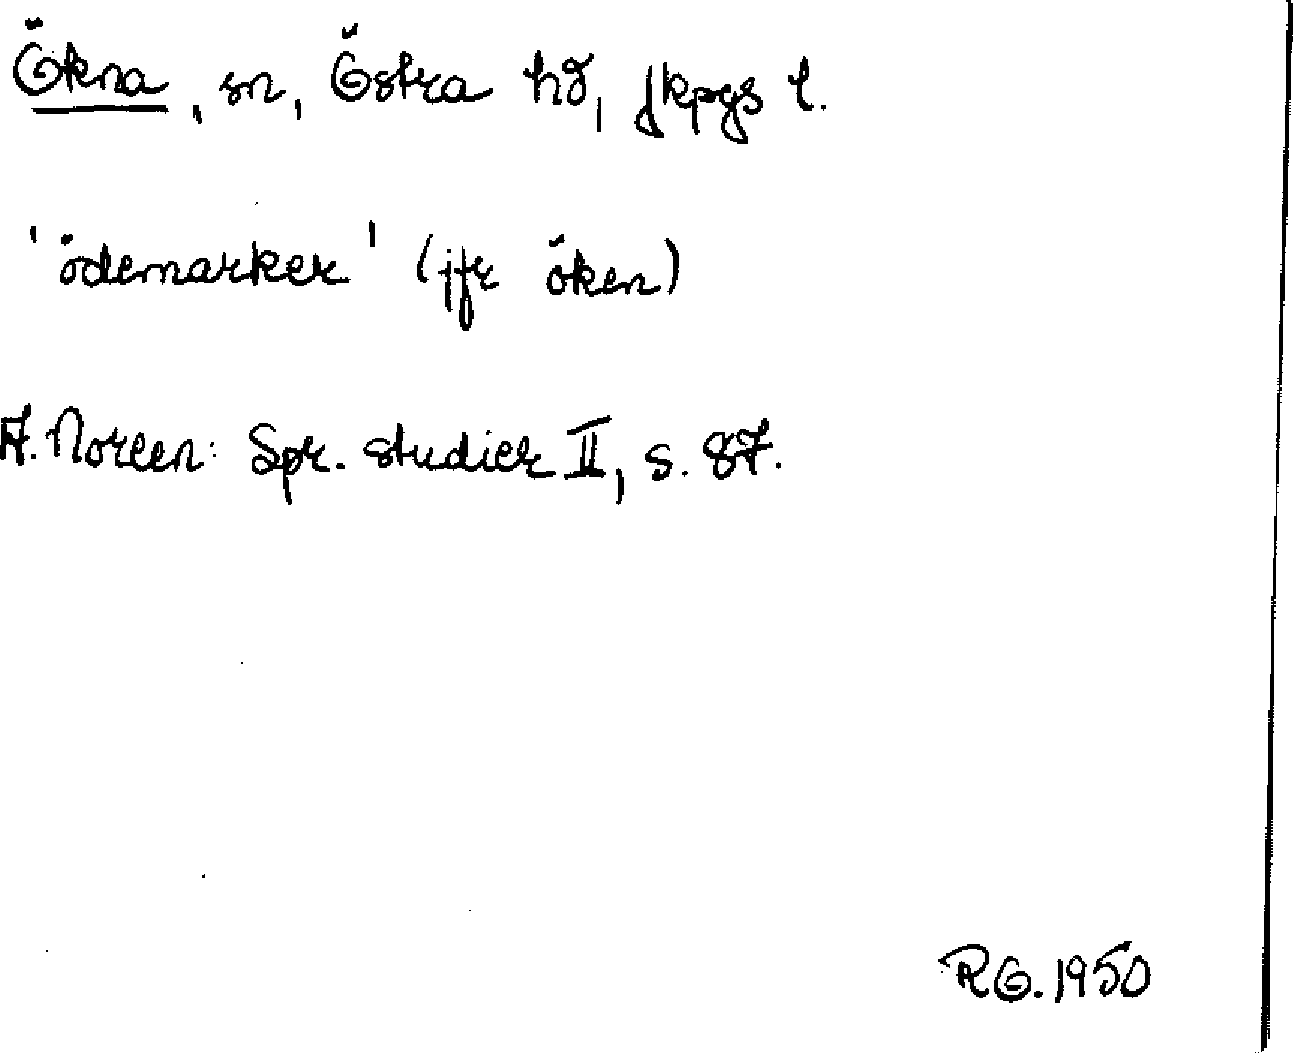 Ökna, sn, Östra hd, Jkpgs l.
'ödemarker' (jfr öken)
A. Noreen: Spr. studier II, s. 87.
RÖ. 1950